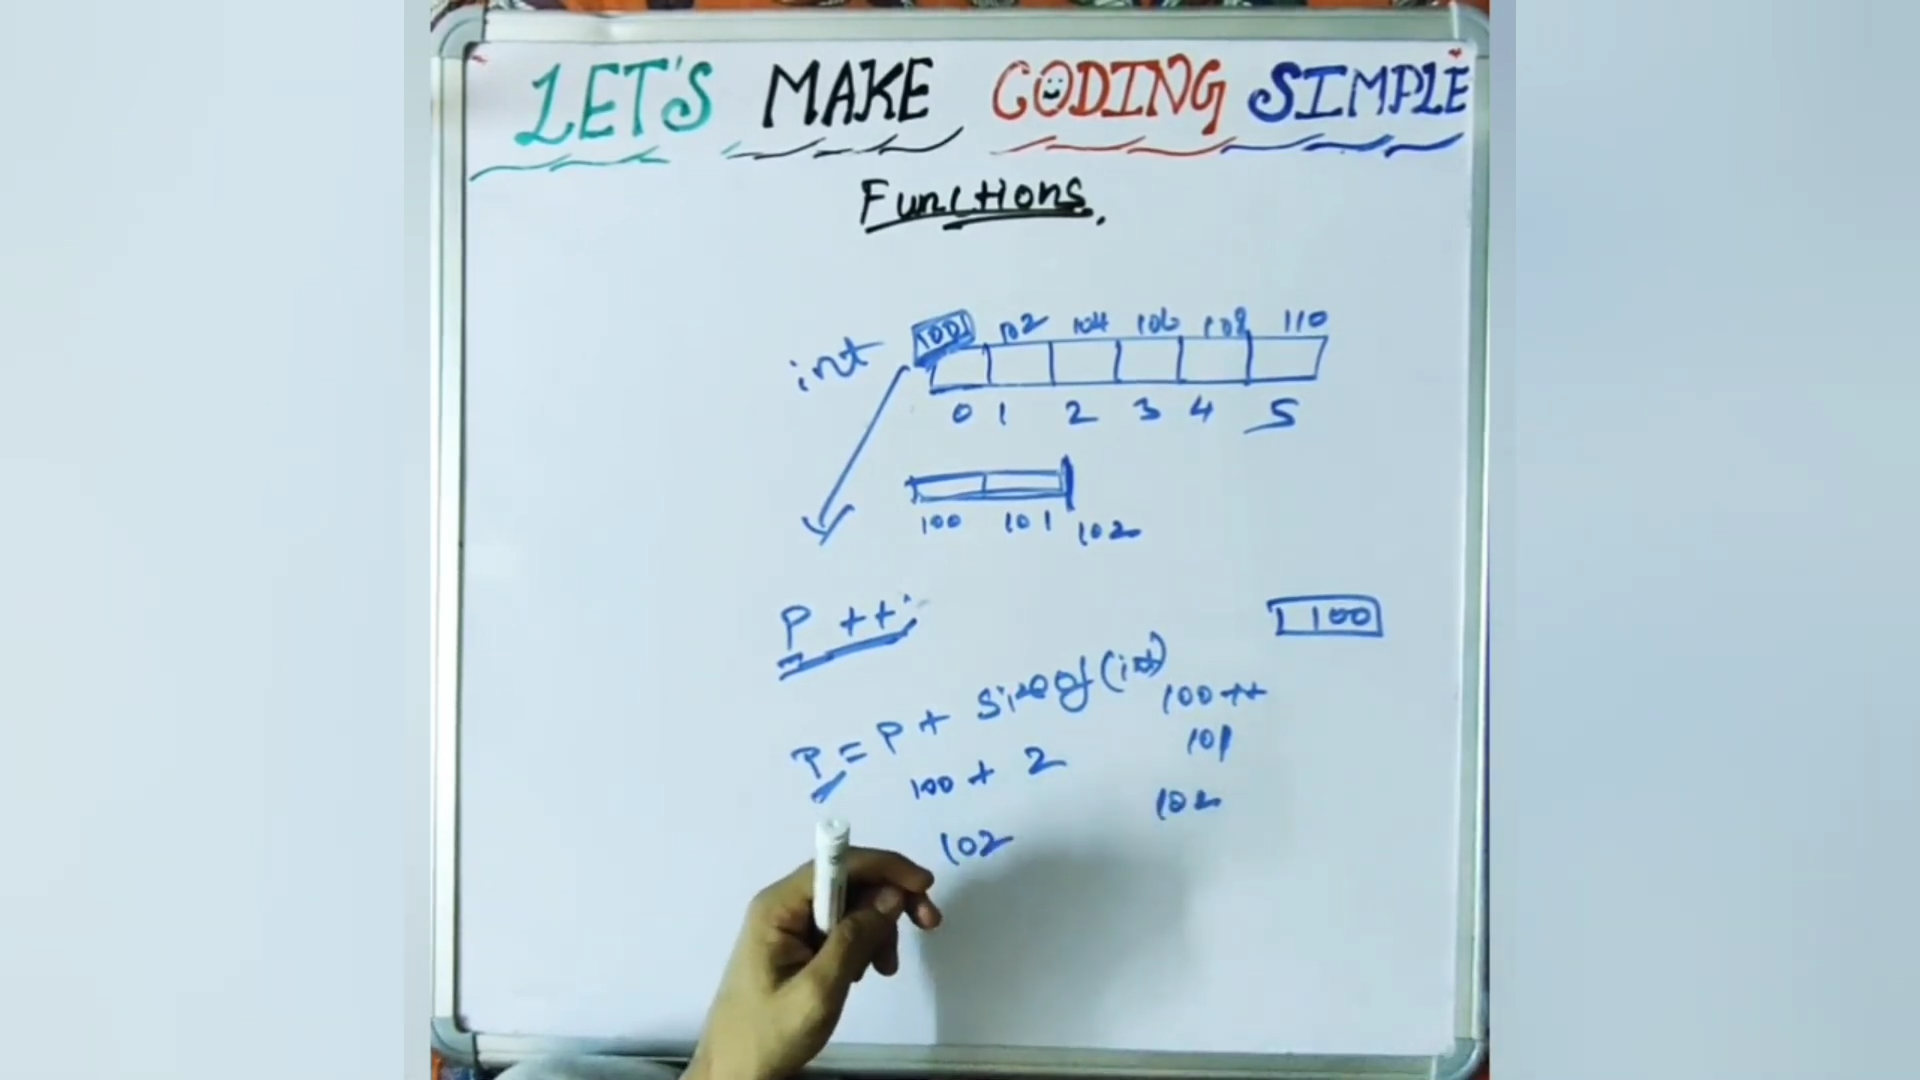 LET'S MAKE CODING SIMPLE
Functions.
int
100 102 104 106 108 110
0 1 2 3 4 5
100 101 102
P ++;
100
P = P + sizeof(int)
100++
100 + 2
101
102
102